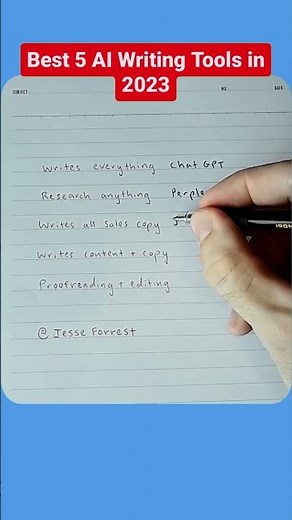 Best 5 AI Writing Tools in
2023
SUBJECT:
NO:
DATE:
Writes everything ChatGPT
Research anything
Writes all sales copy
Writes content + copy
Proofreading + editing
@ Jesse Forrest